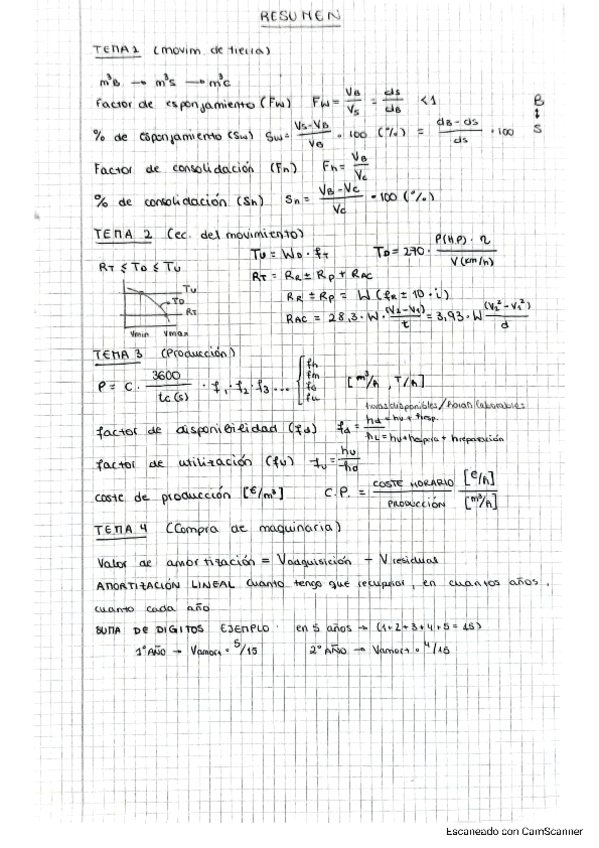 RESUMEN
TEMA 1 (movim. de tierra)
m³B → m³S → m³C
Factor de esponjamiento (Fw) Fw = VB/VS = ds/dB < 1
B ↕ S
% de esponjamiento (Sw) Sw = VS-VB/VB · 100 (%) = dB-ds/ds · 100
Factor de consolidación (Fh) Fh = VB/VC
% de consolidación (Sh) Sh = VB-VC/VC · 100 (%)
TEMA 2 (ec. del movimiento)
RT ≤ TD ≤ TU
TU = WD · fT TD = 270 · P(HP) · η / V(km/h)
RT = RR ± RP + RAC
RR ± RP = W (fR ± 10 · i)
RAC = 28,3 · W · (V2-V1)/t = 3,93 · W (V2²-V1²)/d
TU
TD
RT
Vmin Vmax
TEMA 3 (Producción)
P = C · 3600/tc(s) · f1 · f2 · f3 ... { fh fm fd fu [m³/h, T/h]
horas disponibles/horas laborables
factor de disponibilidad (fd) fd = hd = hu +
hL = hu +
factor de utilización (fu) fu = hu/hd
coste de producción [€/m³] C.P. = COSTE HORARIO/PRODUCCIÓN [€/h]/[m³/h]
TEMA 4 (Compra de maquinaria)
Valor de amortización = Vadquisición - V residual
AMORTIZACIÓN LINEAL cuanto tengo que recuperar, en cuantos años,
cuanto cada año
SUMA DE DIGITOS EJEMPLO: en 5 años → (1+2+3+4+5 = 15)
1º AÑO → Vamort · 5/15 2º AÑO → Vamort · 4/15
Escaneado con CamScanner